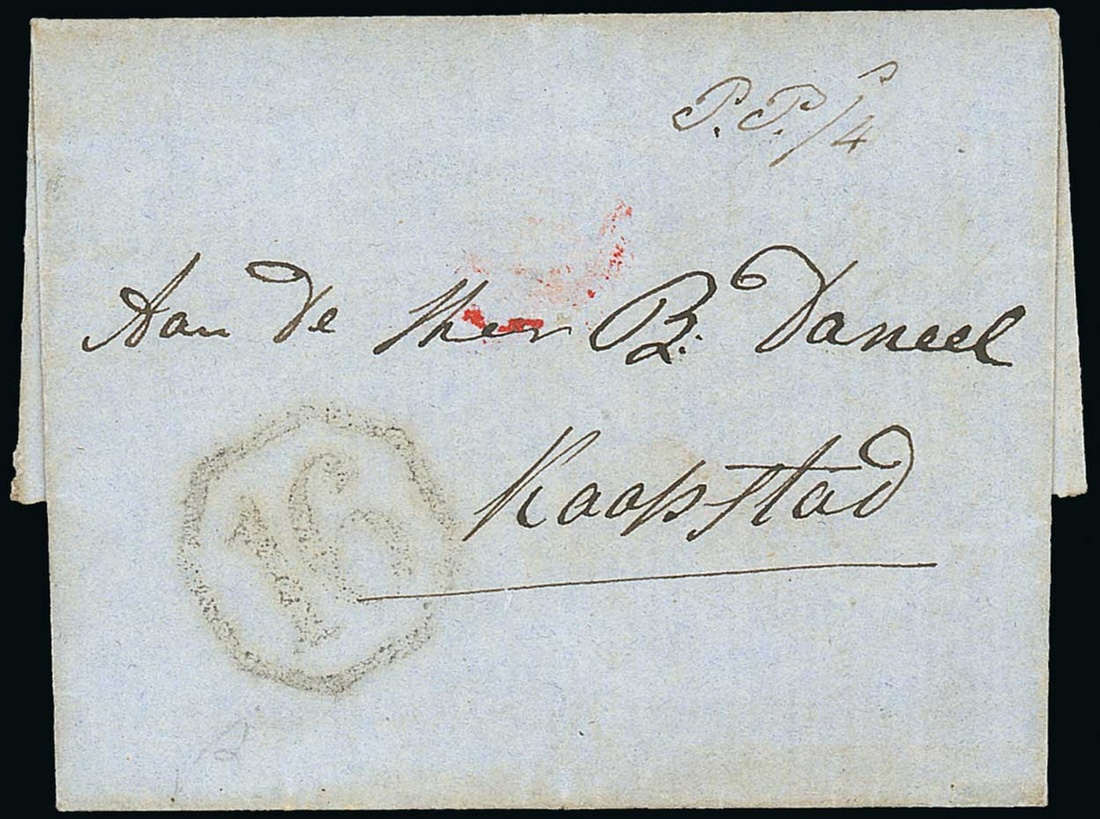 P.P./4
Aan De Heer B. Daneel
Kaapstad
16